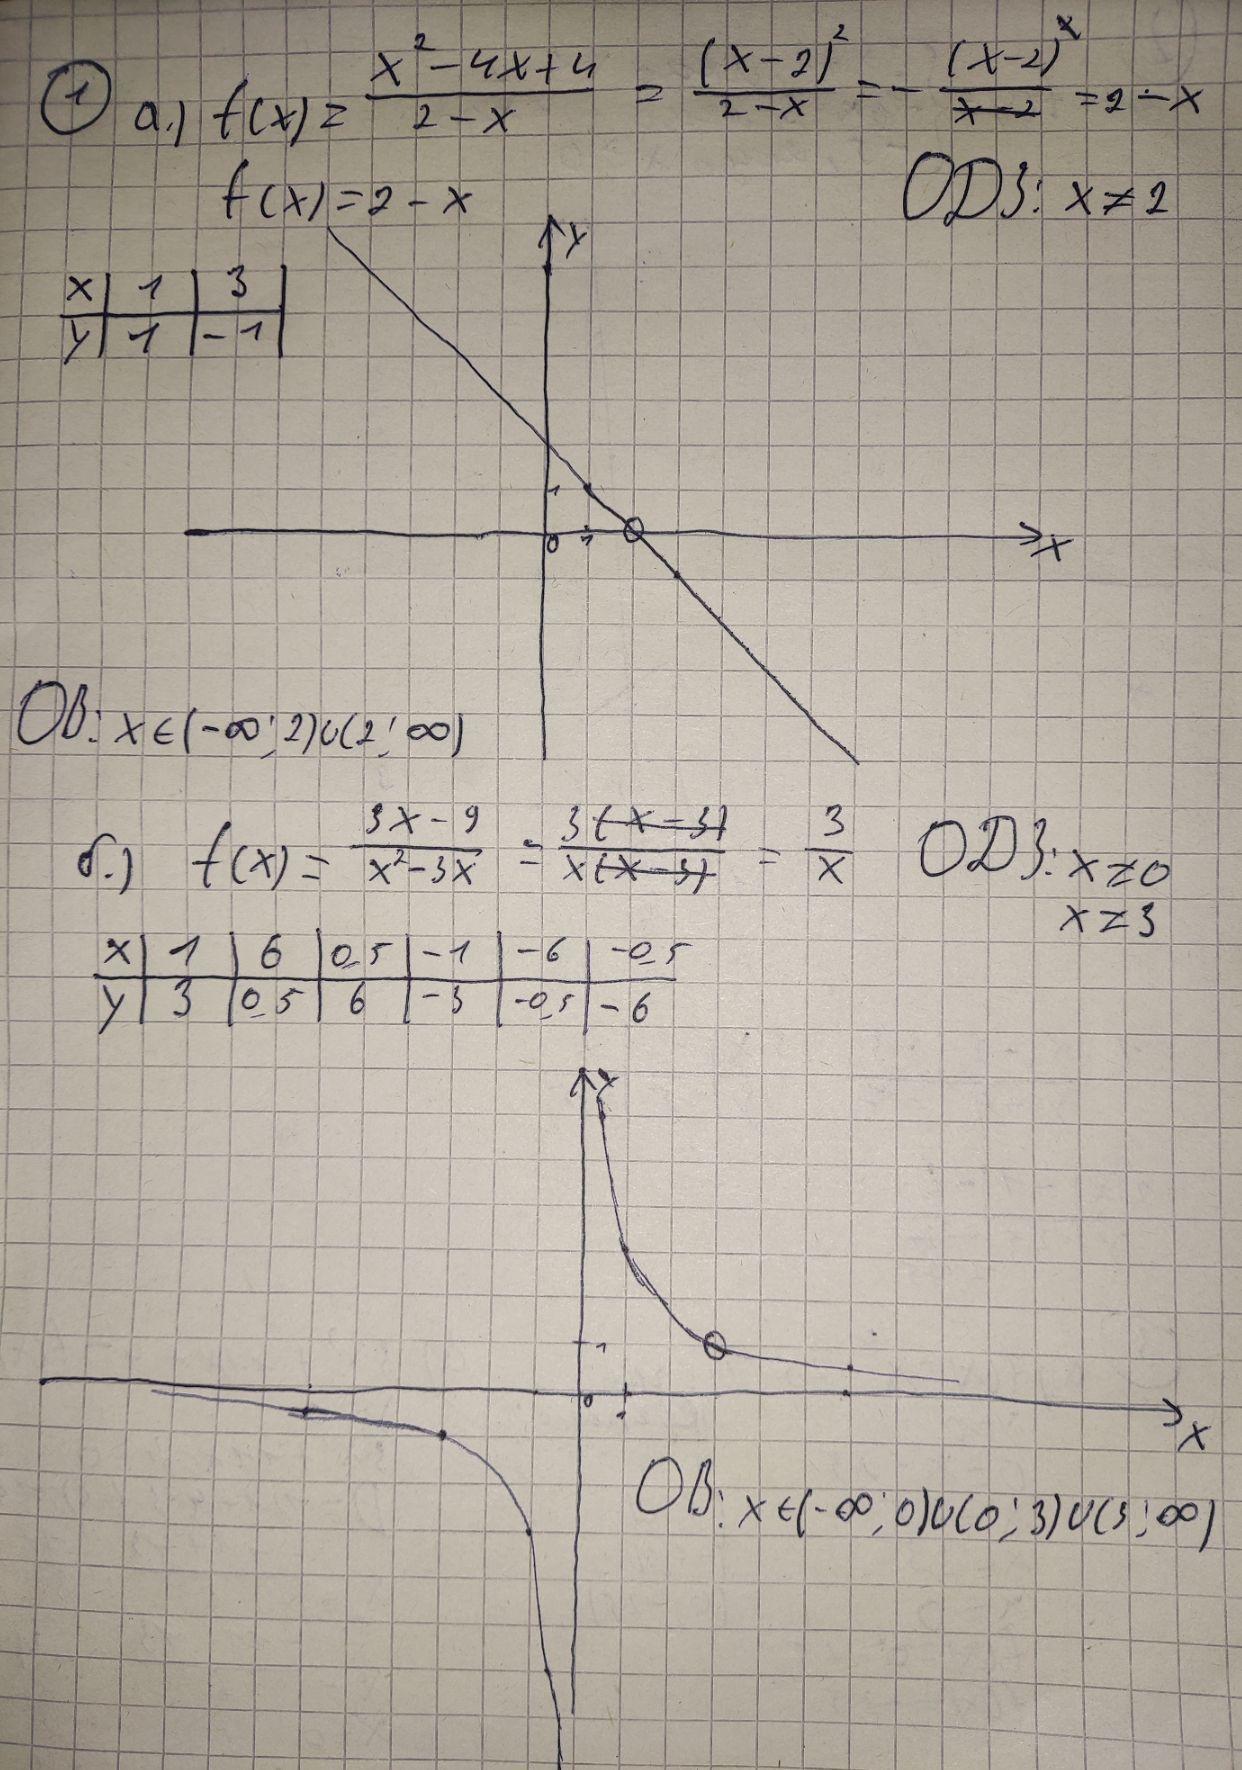 1 а.) f(x) = (x² - 4x + 4)/(2 - x) = (x-2)²/(2-x) = - (x-2)²/(x-2) = 2 - x
f(x) = 2 - x ОДЗ: x ≠ 2
x | 1 | 3
y | 1 | -1
y
1
0 1 x
ОВ: x ∈ (-∞; 2) ∪ (2; ∞)
б.) f(x) = (3x - 9)/(x² - 3x) = 3(x-3)/x(x-3) = 3/x ОДЗ: x ≠ 0
x ≠ 3
x | 1 | 6 | 0,5 | -1 | -6 | -0,5
y | 3 | 0,5 | 6 | -3 | -0,5 | -6
y
1
0 1 x
ОВ: x ∈ (-∞; 0) ∪ (0; 3) ∪ (3; ∞)